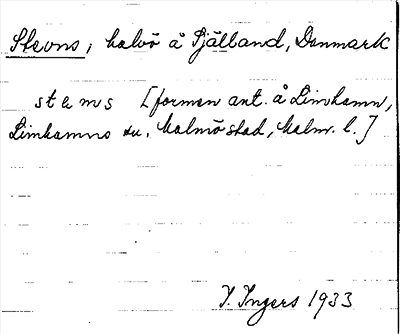 Stevns, halvö å Själland, Danmark
stems [formen ant. å Limhamn,
Limhamns sn. Malmö stad, Malm. l.]
I. Ingers 1933